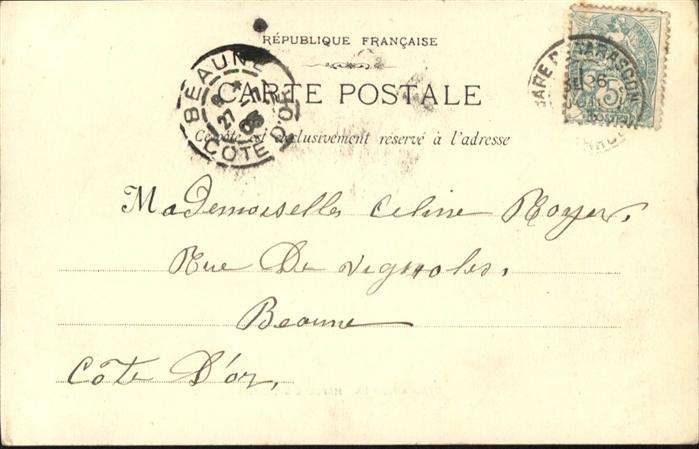 RÉPUBLIQUE FRANÇAISE
CARTE POSTALE
Ce côté est exclusivement réservé à l'adresse
BEAUNE
27
CÔTE D'OR
GARE TARASCON
5
POSTES
Mademoiselle Celine Royer.
Rue De Vignoles.
Beaune
Côte D'or.